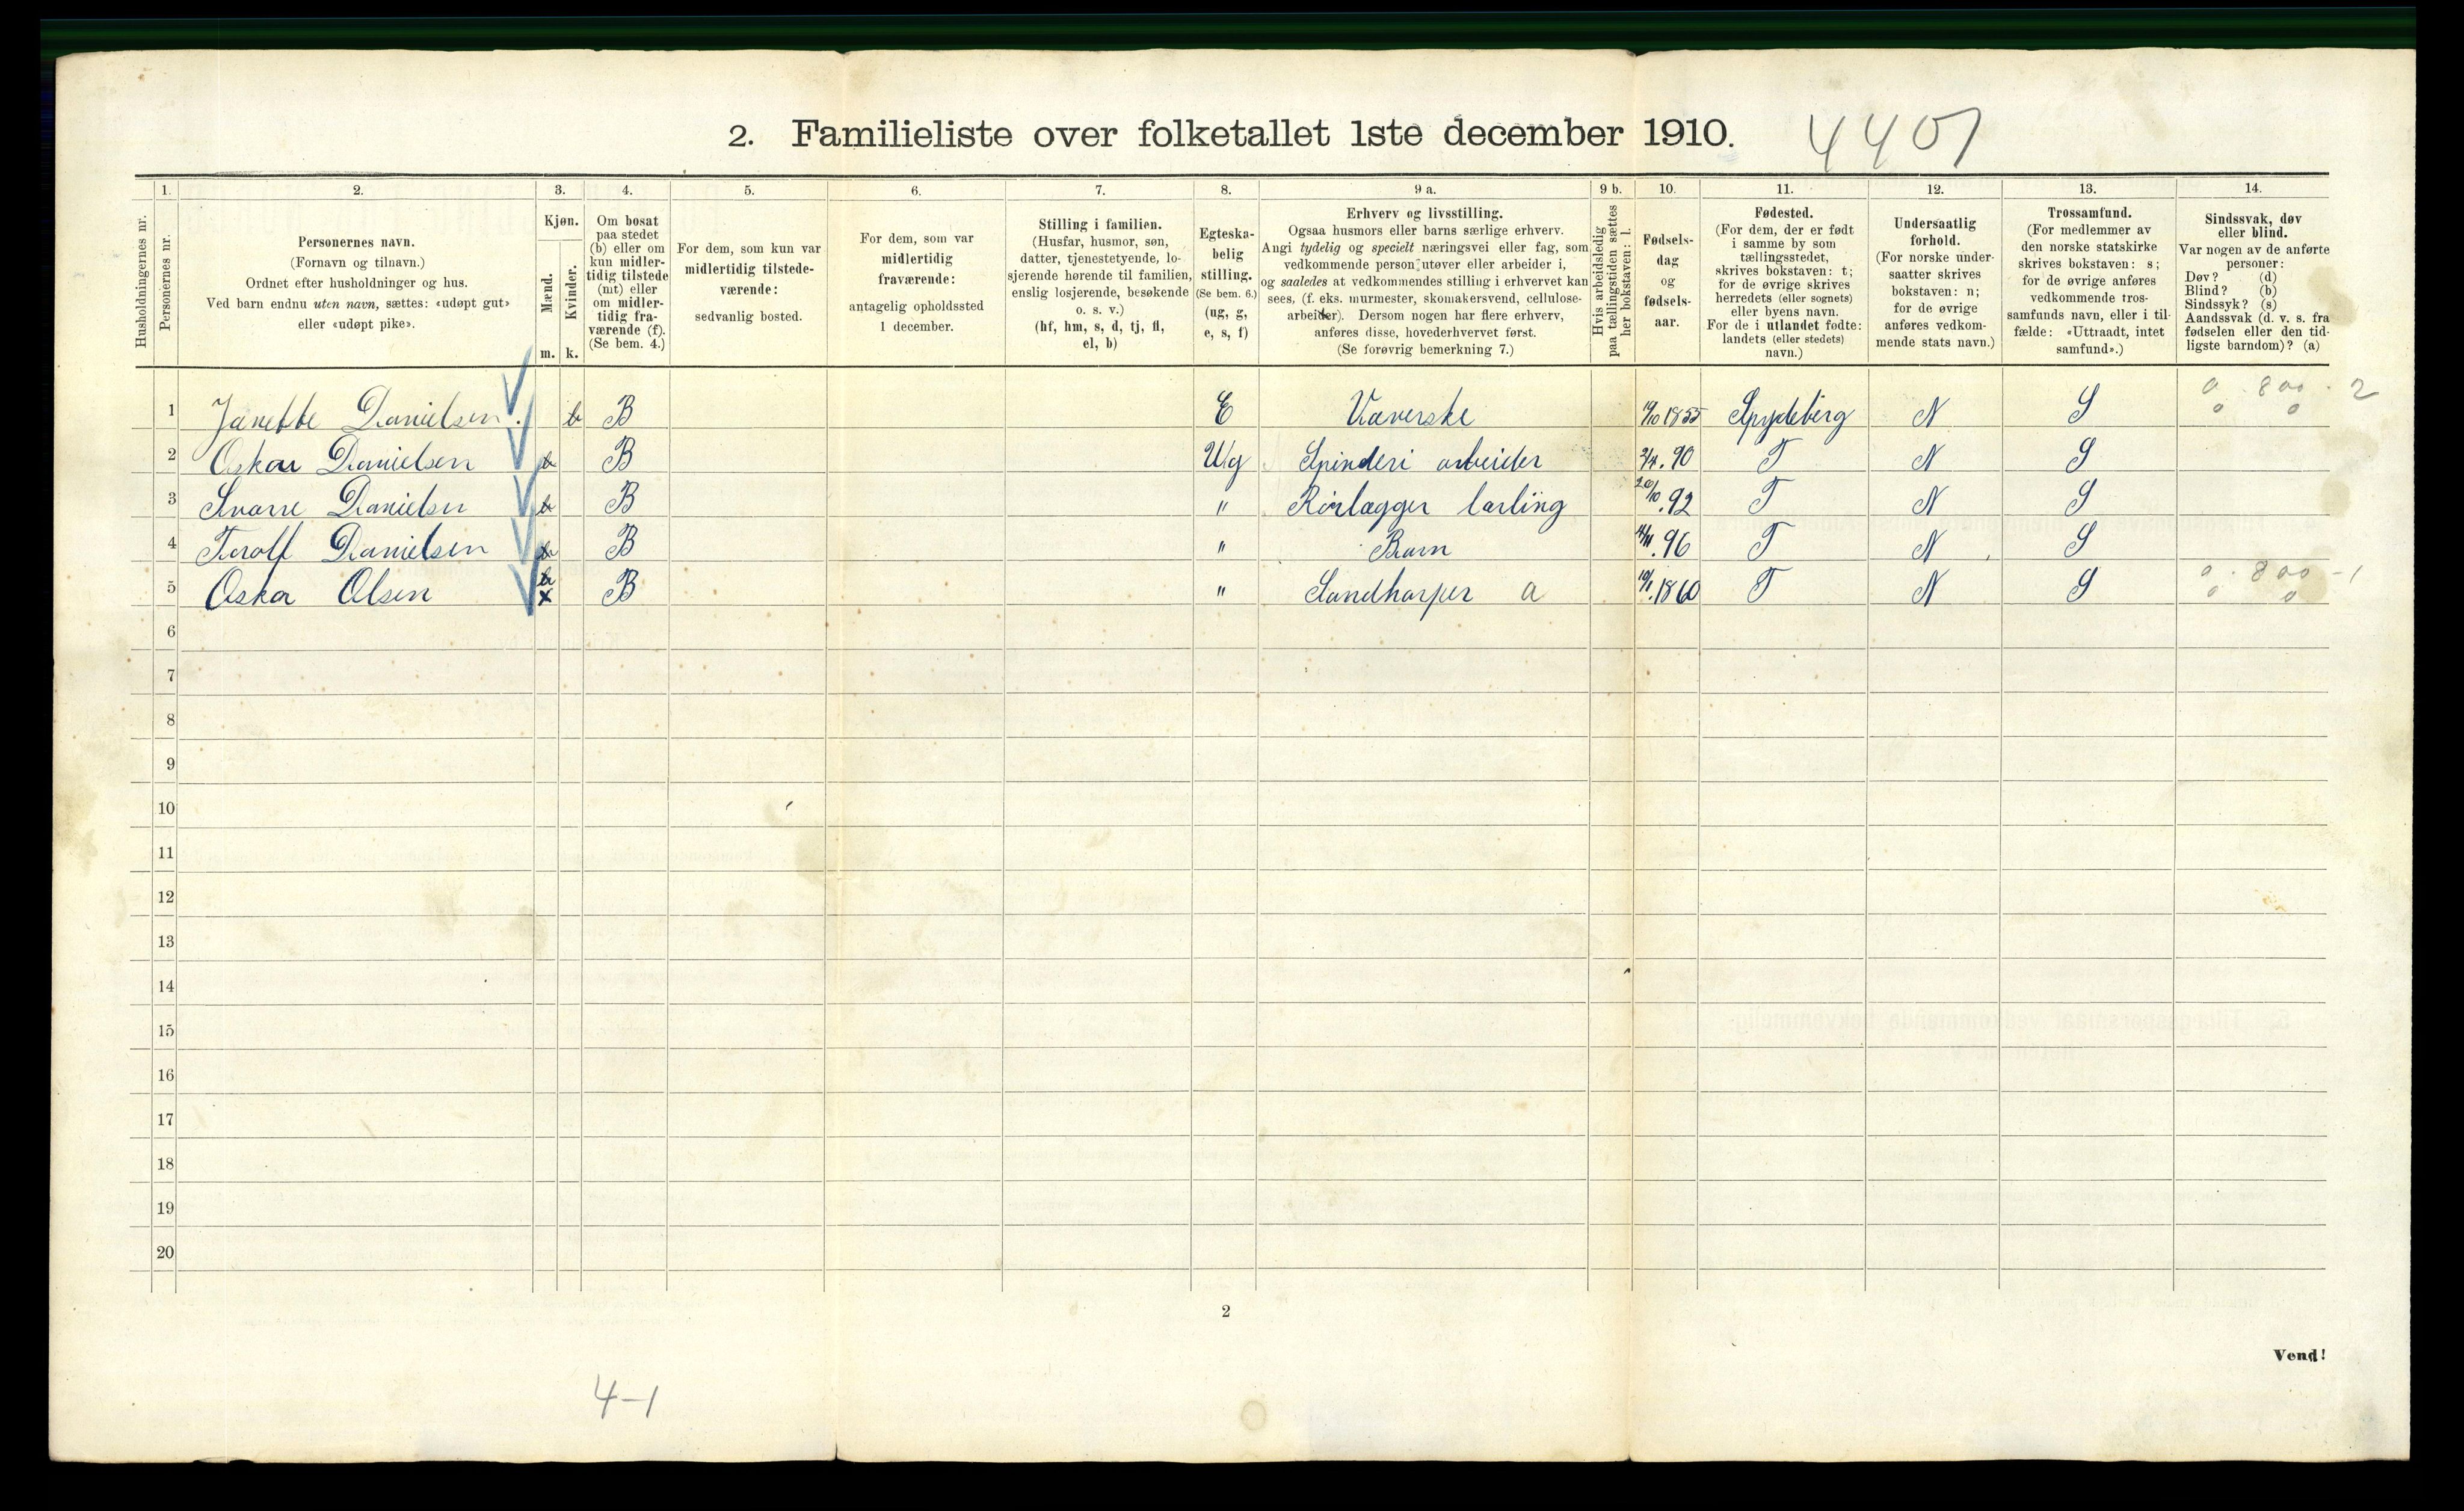 2. Familieliste over folketallet 1ste december 1910.
4401
1. 2. 3. 4. 5. 6. 7. 8. 9 a. 9 b. 10. 11. 12. 13. 14.
Husholdningernes nr.
Personernes nr.
Personernes navn.
(Fornavn og tilnavn.)
Ordnet efter husholdninger og hus.
Ved barn endnu uten navn, sættes: «udøpt gut»
eller «udøpt pike».
Kjøn.
Mænd.
Kvinder.
m. k.
Om bosat
paa stedet
(b) eller om
kun midler-
tidig tilstede
(mt) eller
om midler-
tidig fra-
værende (f).
(Se bem. 4.)
For dem, som kun var
midlertidig tilstede-
værende:
sedvanlig bosted.
For dem, som var
midlertidig
fraværende:
antagelig opholdssted
1 december.
Stilling i familien.
(Husfar, husmor, søn,
datter, tjenestetyende, lo-
sjerende hørende til familien,
enslig losjerende, besøkende
o. s. v.)
(hf, hm, s, d, tj, fl,
el, b)
Egteska-
belig
stilling.
(Se bem. 6.)
(ug, g,
e, s, f)
Erhverv og livsstilling.
Ogsaa husmors eller barns særlige erhverv.
Angi tydelig og specielt næringsvei eller fag, som
vedkommende person utøver eller arbeider i,
og saaledes at vedkommendes stilling i erhvervet kan
sees, (f. eks. murmester, skomakersvend, cellulose-
arbeider). Dersom nogen har flere erhverv,
anføres disse, hovederhvervet først.
(Se forøvrig bemerkning 7.)
Hvis arbeidsledig
paa tællingstiden sættes
her bokstaven: l.
Fødsels-
dag
og
fødsels-
aar.
Fødested.
(For dem, der er født
i samme by som
tællingsstedet,
skrives bokstaven: t;
for de øvrige skrives
herredets (eller sognets)
eller byens navn.
For de i utlandet fødte:
landets (eller stedets)
navn.)
Undersaatlig
forhold.
(For norske under-
saatter skrives
bokstaven: n;
for de øvrige
anføres vedkom-
mende stats navn.)
Trossamfund.
(For medlemmer av
den norske statskirke
skrives bokstaven: s;
for de øvrige anføres
vedkommende tros-
samfunds navn, eller i til-
fælde: «Uttraadt, intet
samfund».)
Sindssvak, døv
eller blind.
Var nogen av de anførte
personer:
Døv? (d)
Blind? (b)
Sindssyk? (s)
Aandssvak (d. v. s. fra
fødselen eller den tid-
ligste barndom)? (a)
1 Janette Danielsen. B E Væverske 19/10 1855 Spydeberg N S 0 . 800 . 2
2 Oskar Danielsen B Ug Spinderi arbeider .90 T N S
3 Snorre Danielsen B " Rørlægger lærling 20/10 .92 T N S
4 Torolf Danielsen B " Barn .96 T N S
5 Oskar Olsen x B " Sandharper a .1860 T N S 0 . 800 - 1
6
7
8
9
10
11
12
13
14
15
16
17
18
19
20
2
Vend!
4-1